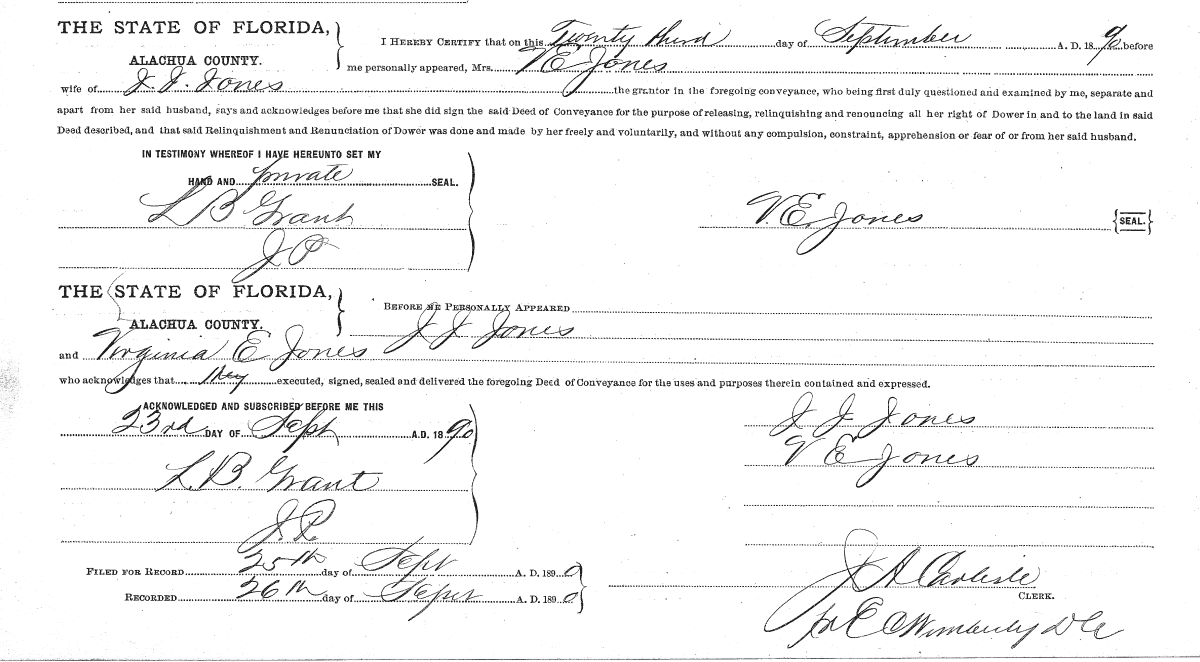 THE STATE OF FLORIDA,
ALACHUA COUNTY.
I HEREBY CERTIFY that on this Twenty third day of September A. D. 1890 before
me personally appeared, Mrs. V E Jones
wife of J. J. Jones the grantor in the foregoing conveyance, who being first duly questioned and examined by me, separate and
apart from her said husband, says and acknowledges before me that she did sign the said Deed of Conveyance for the purpose of releasing, relinquishing and renouncing all her right of Dower in and to the land in said
Deed described, and that said Relinquishment and Renunciation of Dower was done and made by her freely and voluntarily, and without any compulsion, constraint, apprehension or fear of or from her said husband.
IN TESTIMONY WHEREOF I HAVE HEREUNTO SET MY
HAND AND private SEAL.
L B Grant
V. E. Jones {SEAL.}
J P
THE STATE OF FLORIDA,
ALACHUA COUNTY.
BEFORE ME PERSONALLY APPEARED
J J Jones
and Virginia E Jones
who acknowledges that they executed, signed, sealed and delivered the foregoing Deed of Conveyance for the uses and purposes therein contained and expressed.
ACKNOWLEDGED AND SUBSCRIBED BEFORE ME THIS
23rd DAY OF Sept A.D. 1890
J J Jones
V E Jones
L. B. Grant
J. P.
FILED FOR RECORD 25th day of Sept A. D. 1890
RECORDED 26th day of Sept A. D. 1890
J A Carlisle
CLERK.
pr E C Wimberly D C